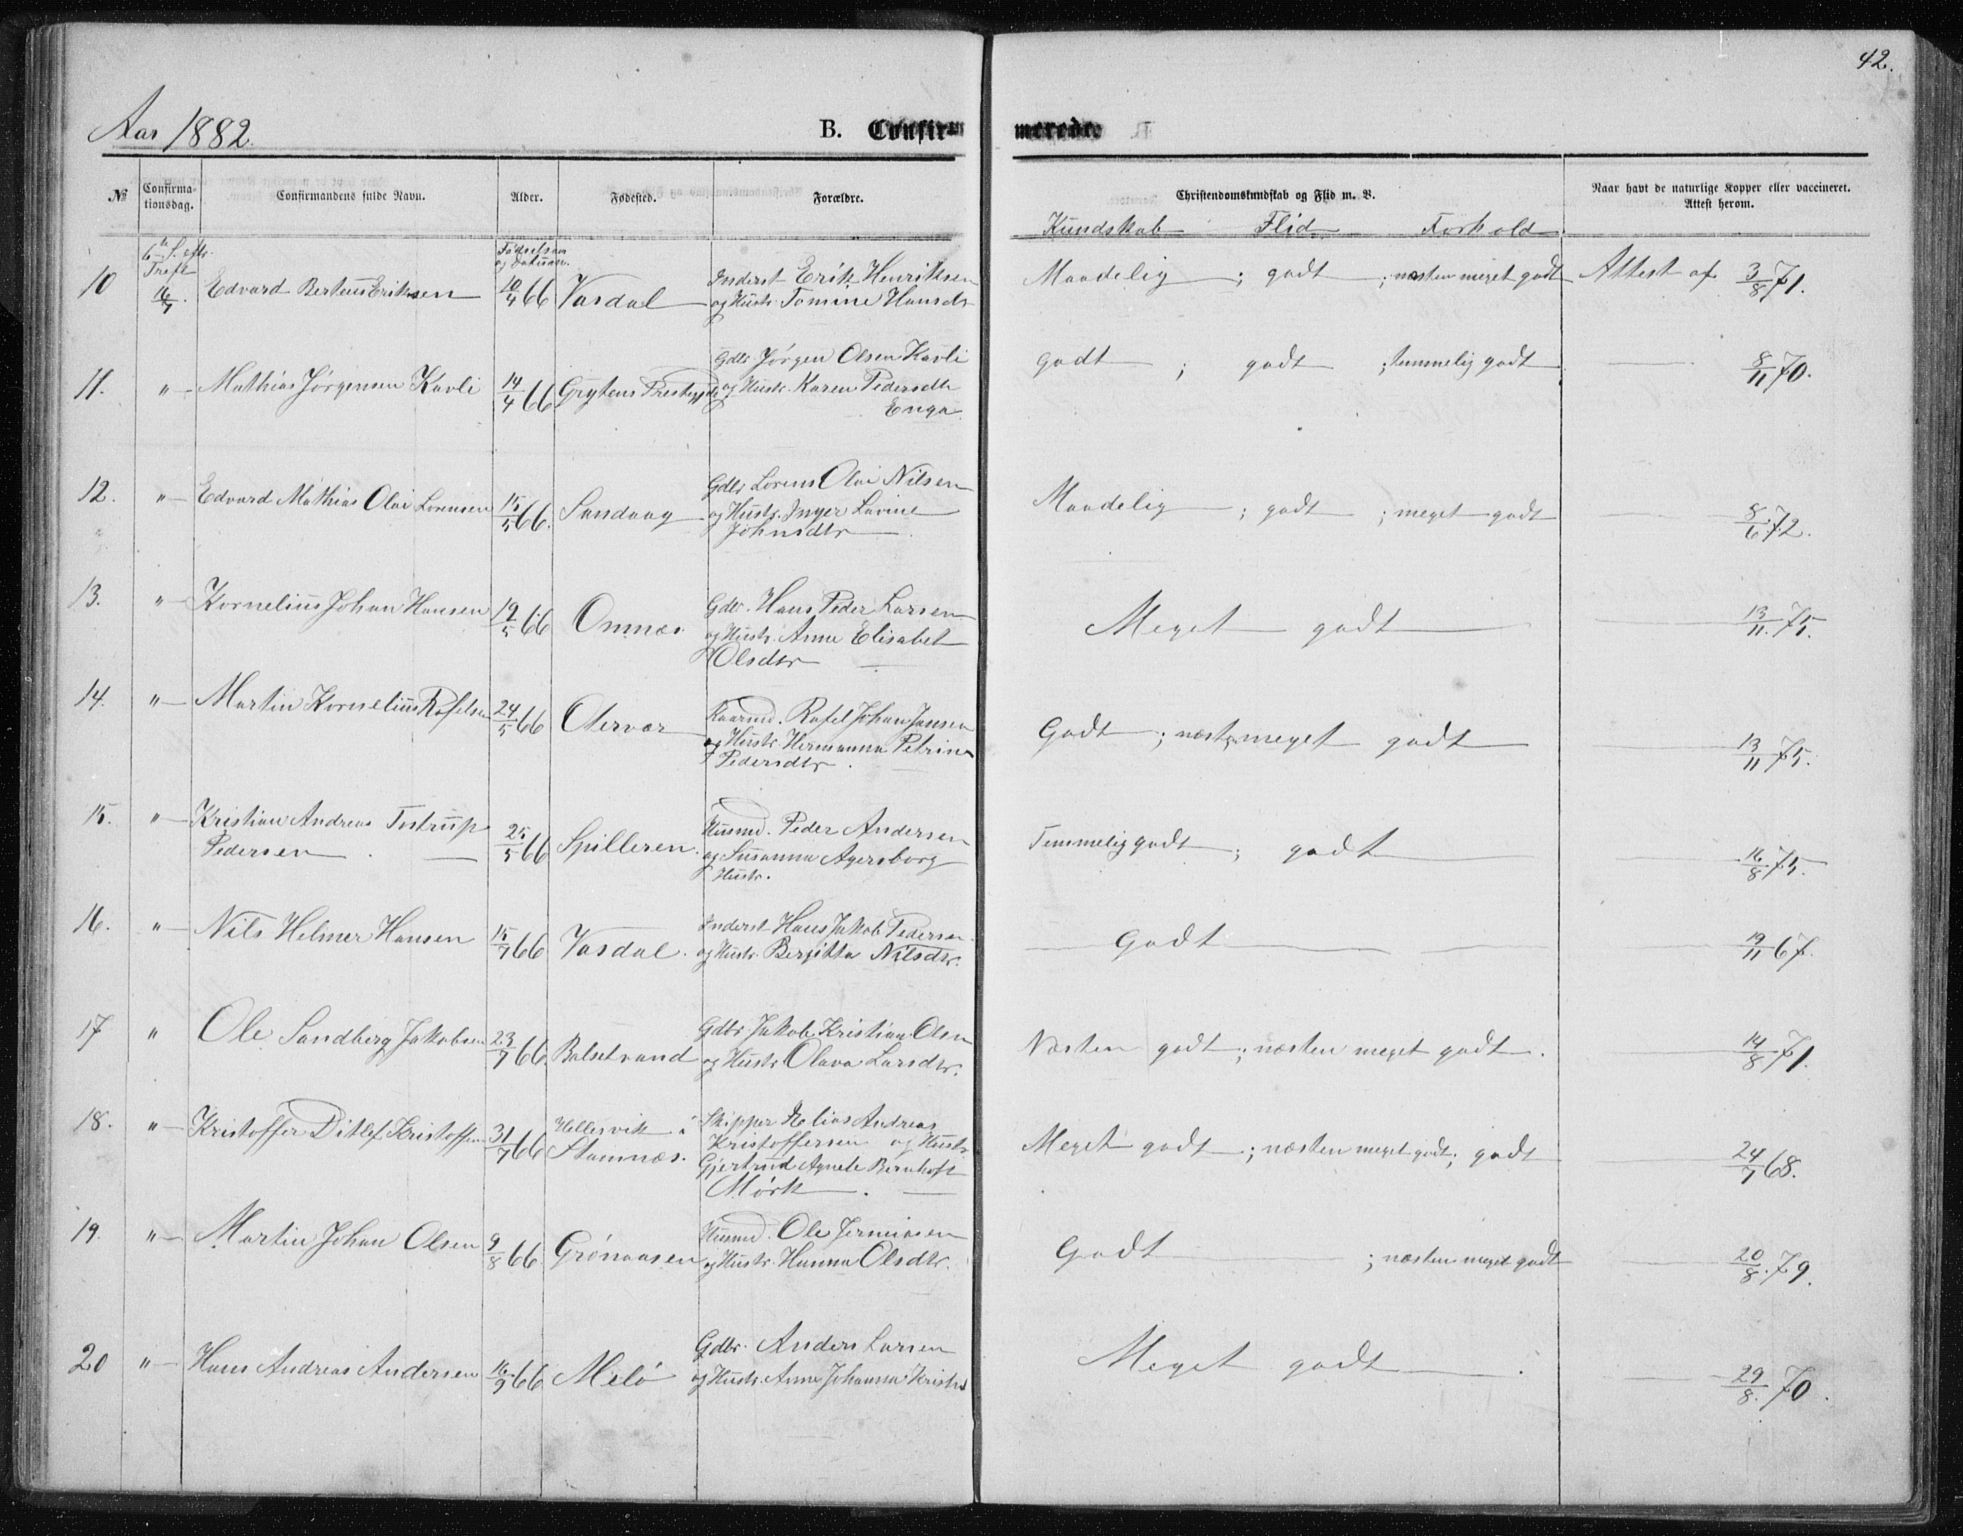 42.
Aar 1882.
B. Confirmerede.
№ Confirmationsdag. Confirmandens fulde Navn. Alder. Fødested. Forældre. Christendomskundskab og Flid m. V. Naar havt de naturlige Kopper eller vaccineret. Attest herom.
Kundskab Flid Forhold
6te S. eftr. Fødselsaar og Datum.
10 Tref. 16/7. Edvard Berteus Eriksen 10/4 66 Vasdal Inderst Erik Henriksen Maadelig ; godt ; næsten meget godt Attest af 3/8 71.
og Hustr. Tomine Hansdr
11. " Mathias Jørgensen Kavli 14/4 66 Grytens Prestegjeld Gdbr Jørgen Olsen Kavli godt ; godt ; temmelig godt 8/11 70.
og Hustr. Karen Pedersdtr
Enga
12. " Edvard Mathias Olai Lorensen 15/5 66. Sandvaag Gdbr Lorens Olai Nilsen Maadelig ; godt ; meget godt 8/6 72.
og Hustr. Inger Lavine
Johnsdtr
13. " Kornelius Johan Hansen 19/5 66 Omnæs Gdbr. Hans Peder Larsen Meget godt 13/11. 75.
og Hustr. Anne Elisabet
Olsdtr
14. " Martin Kornelius Rafelsen 24/5 66 Otervær Kaarmd. Rafel Johan Jansen Godt ; næst. meget godt 13/11 75.
og Hustr. Hermanna Petrine
Pedersdtr.
15. " Kristian Andreas Tostrup 25/5 66 Spilleren. Husmd. Peder Andersen Temmelig godt ; godt 16/8 75.
Pedersen og Susanna Agersborg
Hustr.
16. " Nils Helmer Hansen 15/7 66 Vasdal. Inderst Hans Jakob Pedersen Godt 19/11 67.
og Hustr. Bergitta Nilsdtr.
17 " Ole Sandberg Jakobsen 23/7 66. Balsetvand Gdbr Jakob Kristian Olsen Næsten godt ; næsten meget godt. 14/8 71.
og Hustr Olava Larsdtr.
18. " Kristoffer Ditlef Kristoffersen 31/7 66 Hellesvik i Skipper Elias Andreas Meget godt ; næsten meget godt ; godt 24/7 68.
Stamnæs. Kristoffersen og Hustr.
Gjertrud Agnete Bernhoft
Mørk
19. " Martin Johan Olsen 9/8 66 Grønaasen Husmd. Ole Jermiasen Godt ; næsten meget godt 20/8. 79.
og Hustr. Hanna Olsdtr.
20 " Hans Andreas Andersen 16/9 66 Melö Gdbr. Anders Larsen Meget godt 29/8. 70.
og Hustr. Anne Johanna